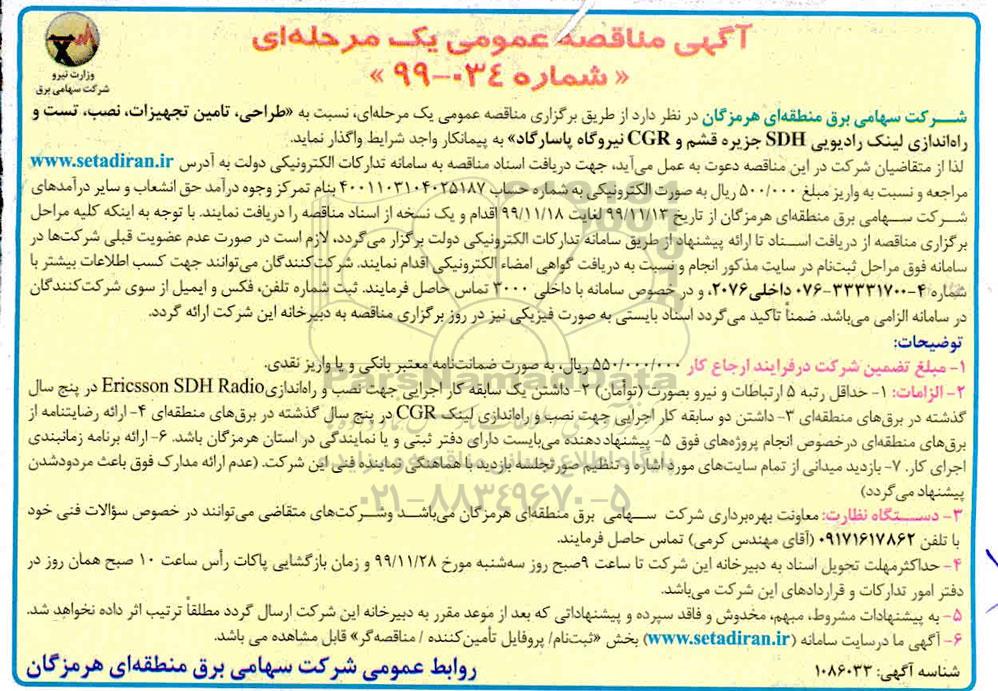 آگهی مناقصه عمومی یک مرحله‌ای
« شماره ۰۳۴-۹۹ »
وزارت نیرو
شرکت سهامی برق
شرکت سهامی برق منطقه‌ای هرمزگان در نظر دارد از طریق برگزاری مناقصه عمومی یک مرحله‌ای، نسبت به «طراحی، تامین تجهیزات، نصب، تست و
راه‌اندازی لینک رادیویی SDH جزیره قشم و CGR نیروگاه پاسارگاد» به پیمانکار واجد شرایط واگذار نماید.
لذا از متقاضیان شرکت در این مناقصه دعوت به عمل می‌آید، جهت دریافت اسناد مناقصه به سامانه تدارکات الکترونیکی دولت به آدرس www.setadiran.ir
مراجعه و نسبت به واریز مبلغ ۵۰۰/۰۰۰ ریال به صورت الکترونیکی به شماره حساب ۴۰۰۱۱۰۳۱۰۴۰۲۵۱۸۷ بنام تمرکز وجوه درآمد حق انشعاب و سایر درآمدهای
شرکت سهامی برق منطقه‌ای هرمزگان از تاریخ ۹۹/۱۱/۱۳ لغایت ۹۹/۱۱/۱۸ اقدام و یک نسخه از اسناد مناقصه را دریافت نمایند. با توجه به اینکه کلیه مراحل
برگزاری مناقصه از دریافت اسناد تا ارائه پیشنهاد از طریق سامانه تدارکات الکترونیکی دولت برگزار می‌گردد، لازم است در صورت عدم عضویت قبلی شرکت‌ها در
سامانه فوق مراحل ثبت‌نام در سایت مذکور انجام و نسبت به دریافت گواهی امضاء الکترونیکی اقدام نمایند. شرکت‌کنندگان می‌توانند جهت کسب اطلاعات بیشتر با
شماره ۴-۳۳۳۳۱۷۰۰-۰۷۶ داخلی ۲۰۷۶، و در خصوص سامانه با داخلی ۳۰۰۰ تماس حاصل فرمایند. ثبت شماره تلفن، فکس و ایمیل از سوی شرکت‌کنندگان
در سامانه الزامی می‌باشد. ضمناً تأکید می‌گردد اسناد بایستی به صورت فیزیکی نیز در روز برگزاری مناقصه به دبیرخانه این شرکت ارائه گردد.
توضیحات:
۱- مبلغ تضمین شرکت درفرایند ارجاع کار ۵۵۰/۰۰۰/۰۰۰ ریال، به صورت ضمانت‌نامه معتبر بانکی و یا واریز نقدی.
۲- الزامات: ۱- حداقل رتبه ۵ ارتباطات و نیرو بصورت (توأمان) ۲- داشتن یک سابقه کار اجرایی جهت نصب و راه‌اندازی Ericsson SDH Radio در پنج سال
گذشته در برق‌های منطقه‌ای ۳- داشتن دو سابقه کار اجرایی جهت نصب و راه‌اندازی لینک CGR در پنج سال گذشته در برق‌های منطقه‌ای ۴- ارائه رضایتنامه از
برق‌های منطقه‌ای درخصوص انجام پروژه‌های فوق ۵- پیشنهاددهنده می‌بایست دارای دفتر ثبتی و یا نمایندگی در استان هرمزگان باشد. ۶- ارائه برنامه زمانبندی
اجرای کار. ۷- بازدید میدانی از تمام سایت‌های مورد اشاره و تنظیم صورتجلسه بازدید با هماهنگی نماینده فنی این شرکت. (عدم ارائه مدارک فوق باعث مردودشدن
پیشنهاد می‌گردد)
۳- دستگاه نظارت: معاونت بهره‌برداری شرکت سهامی برق منطقه‌ای هرمزگان می‌باشد وشرکت‌های متقاضی می‌توانند در خصوص سؤالات فنی خود
با تلفن ۰۹۱۷۱۶۱۷۸۶۲ (آقای مهندس کرمی) تماس حاصل فرمایند.
۴- حداکثرمهلت تحویل اسناد به دبیرخانه این شرکت تا ساعت ۹صبح روز سه‌شنبه مورخ ۹۹/۱۱/۲۸ و زمان بازگشایی پاکات رأس ساعت ۱۰ صبح همان روز در
دفتر امور تدارکات و قراردادهای این شرکت می‌باشد.
۵- به پیشنهادات مشروط، مبهم، مخدوش و فاقد سپرده و پیشنهاداتی که بعد از موعد مقرر به دبیرخانه این شرکت ارسال گردد مطلقاً ترتیب اثر داده نخواهد شد.
۶- آگهی ما درسایت سامانه (www.setadiran.ir) بخش «ثبت‌نام/ پروفایل تأمین‌کننده / مناقصه‌گر» قابل مشاهده می باشد.
شناسه آگهی: ۱۰۸۶۰۳۳
روابط عمومی شرکت سهامی برق منطقه‌ای هرمزگان
ParsNamadData
پایگاه اطلاع رسانی مناقصه و مزایده
۰۲۱-۸۸۳۴۹۶۷۰-۵